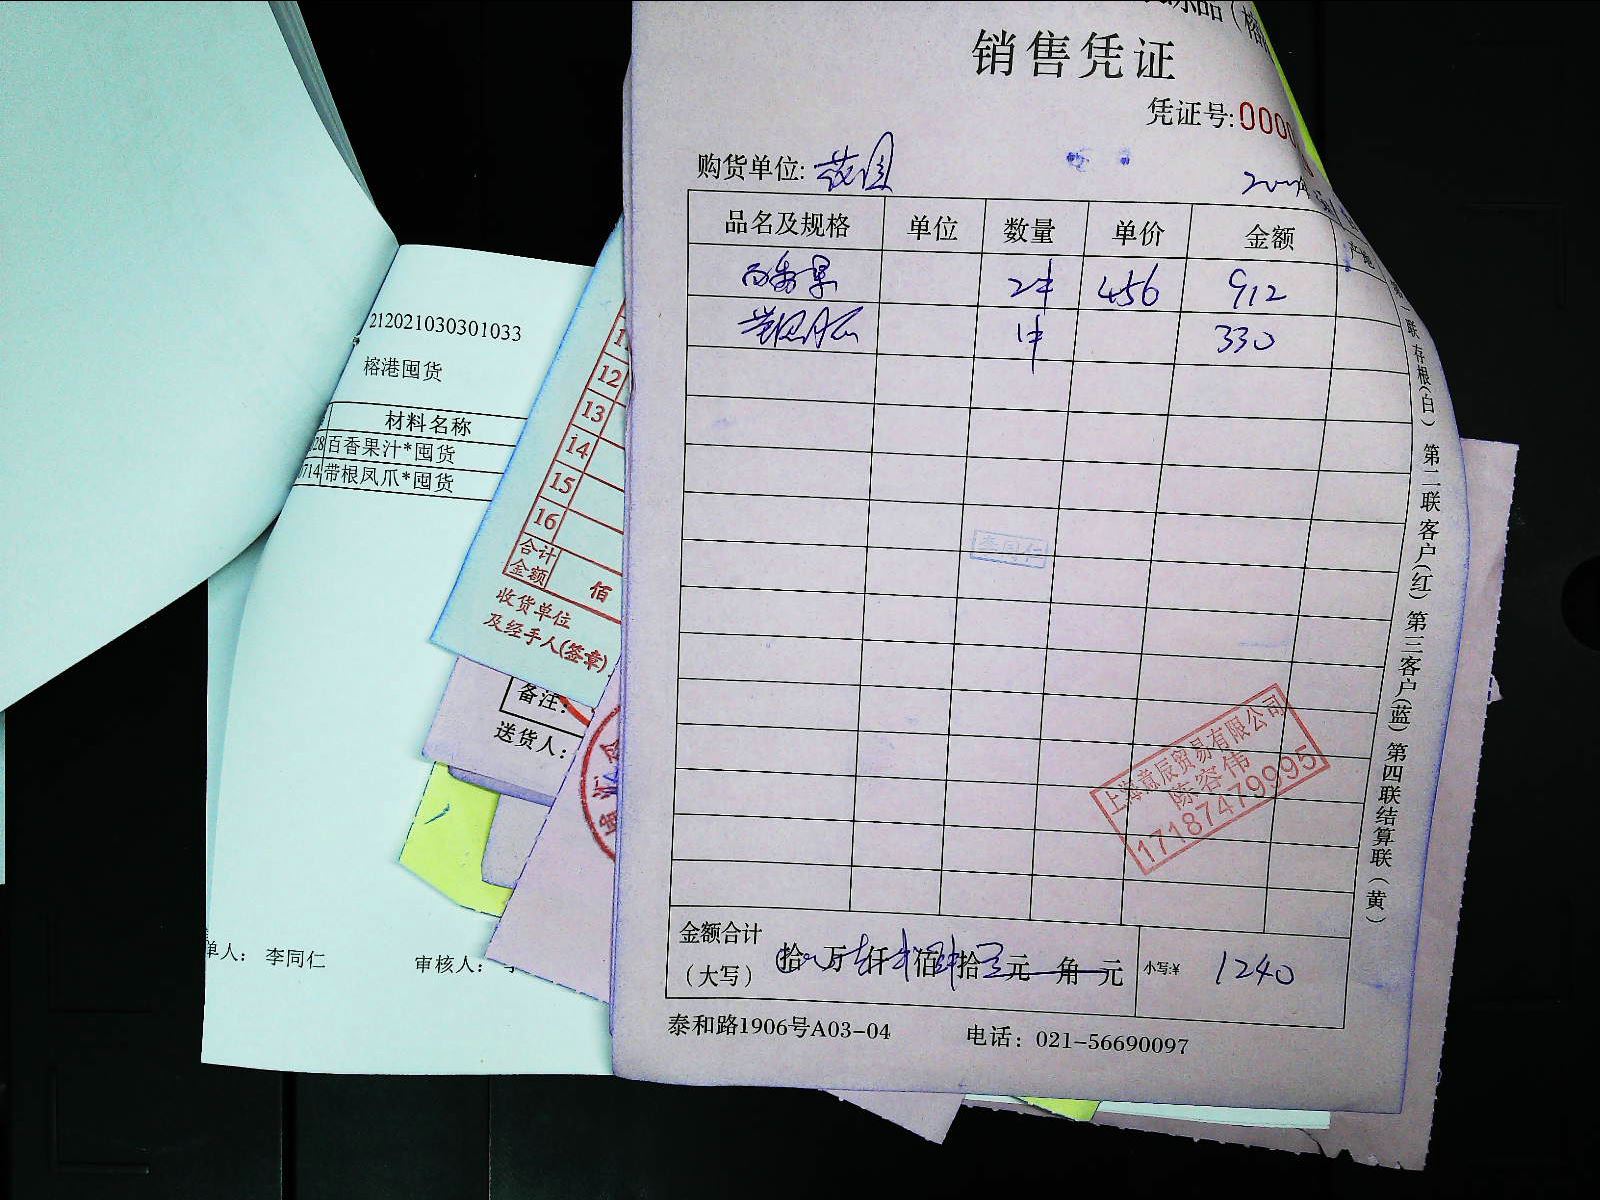 销售凭证
凭证号:000
购货单位:
品名及规格 单位 数量 单价 金额 产地
百香果 2件 456 912
1件 330
第一联存根(白) 第二联客户(红) 第三客户(蓝) 第四联结算联(黄)
李同仁
上海意辰贸易有限公司
陈容伟
17187479995
金额合计
(大写) 拾 万 仟 佰 拾 元 角 元 小写:¥ 1240
泰和路1906号A03-04 电话: 021-56690097
212021030301033
榕港囤货
材料名称
28 百香果汁*囤货
714 带根凤爪*囤货
单人: 李同仁 审核人:
12
13
14
15
16
合计
金额 佰
收货单位
及经手人(签章)
备注:
送货人: